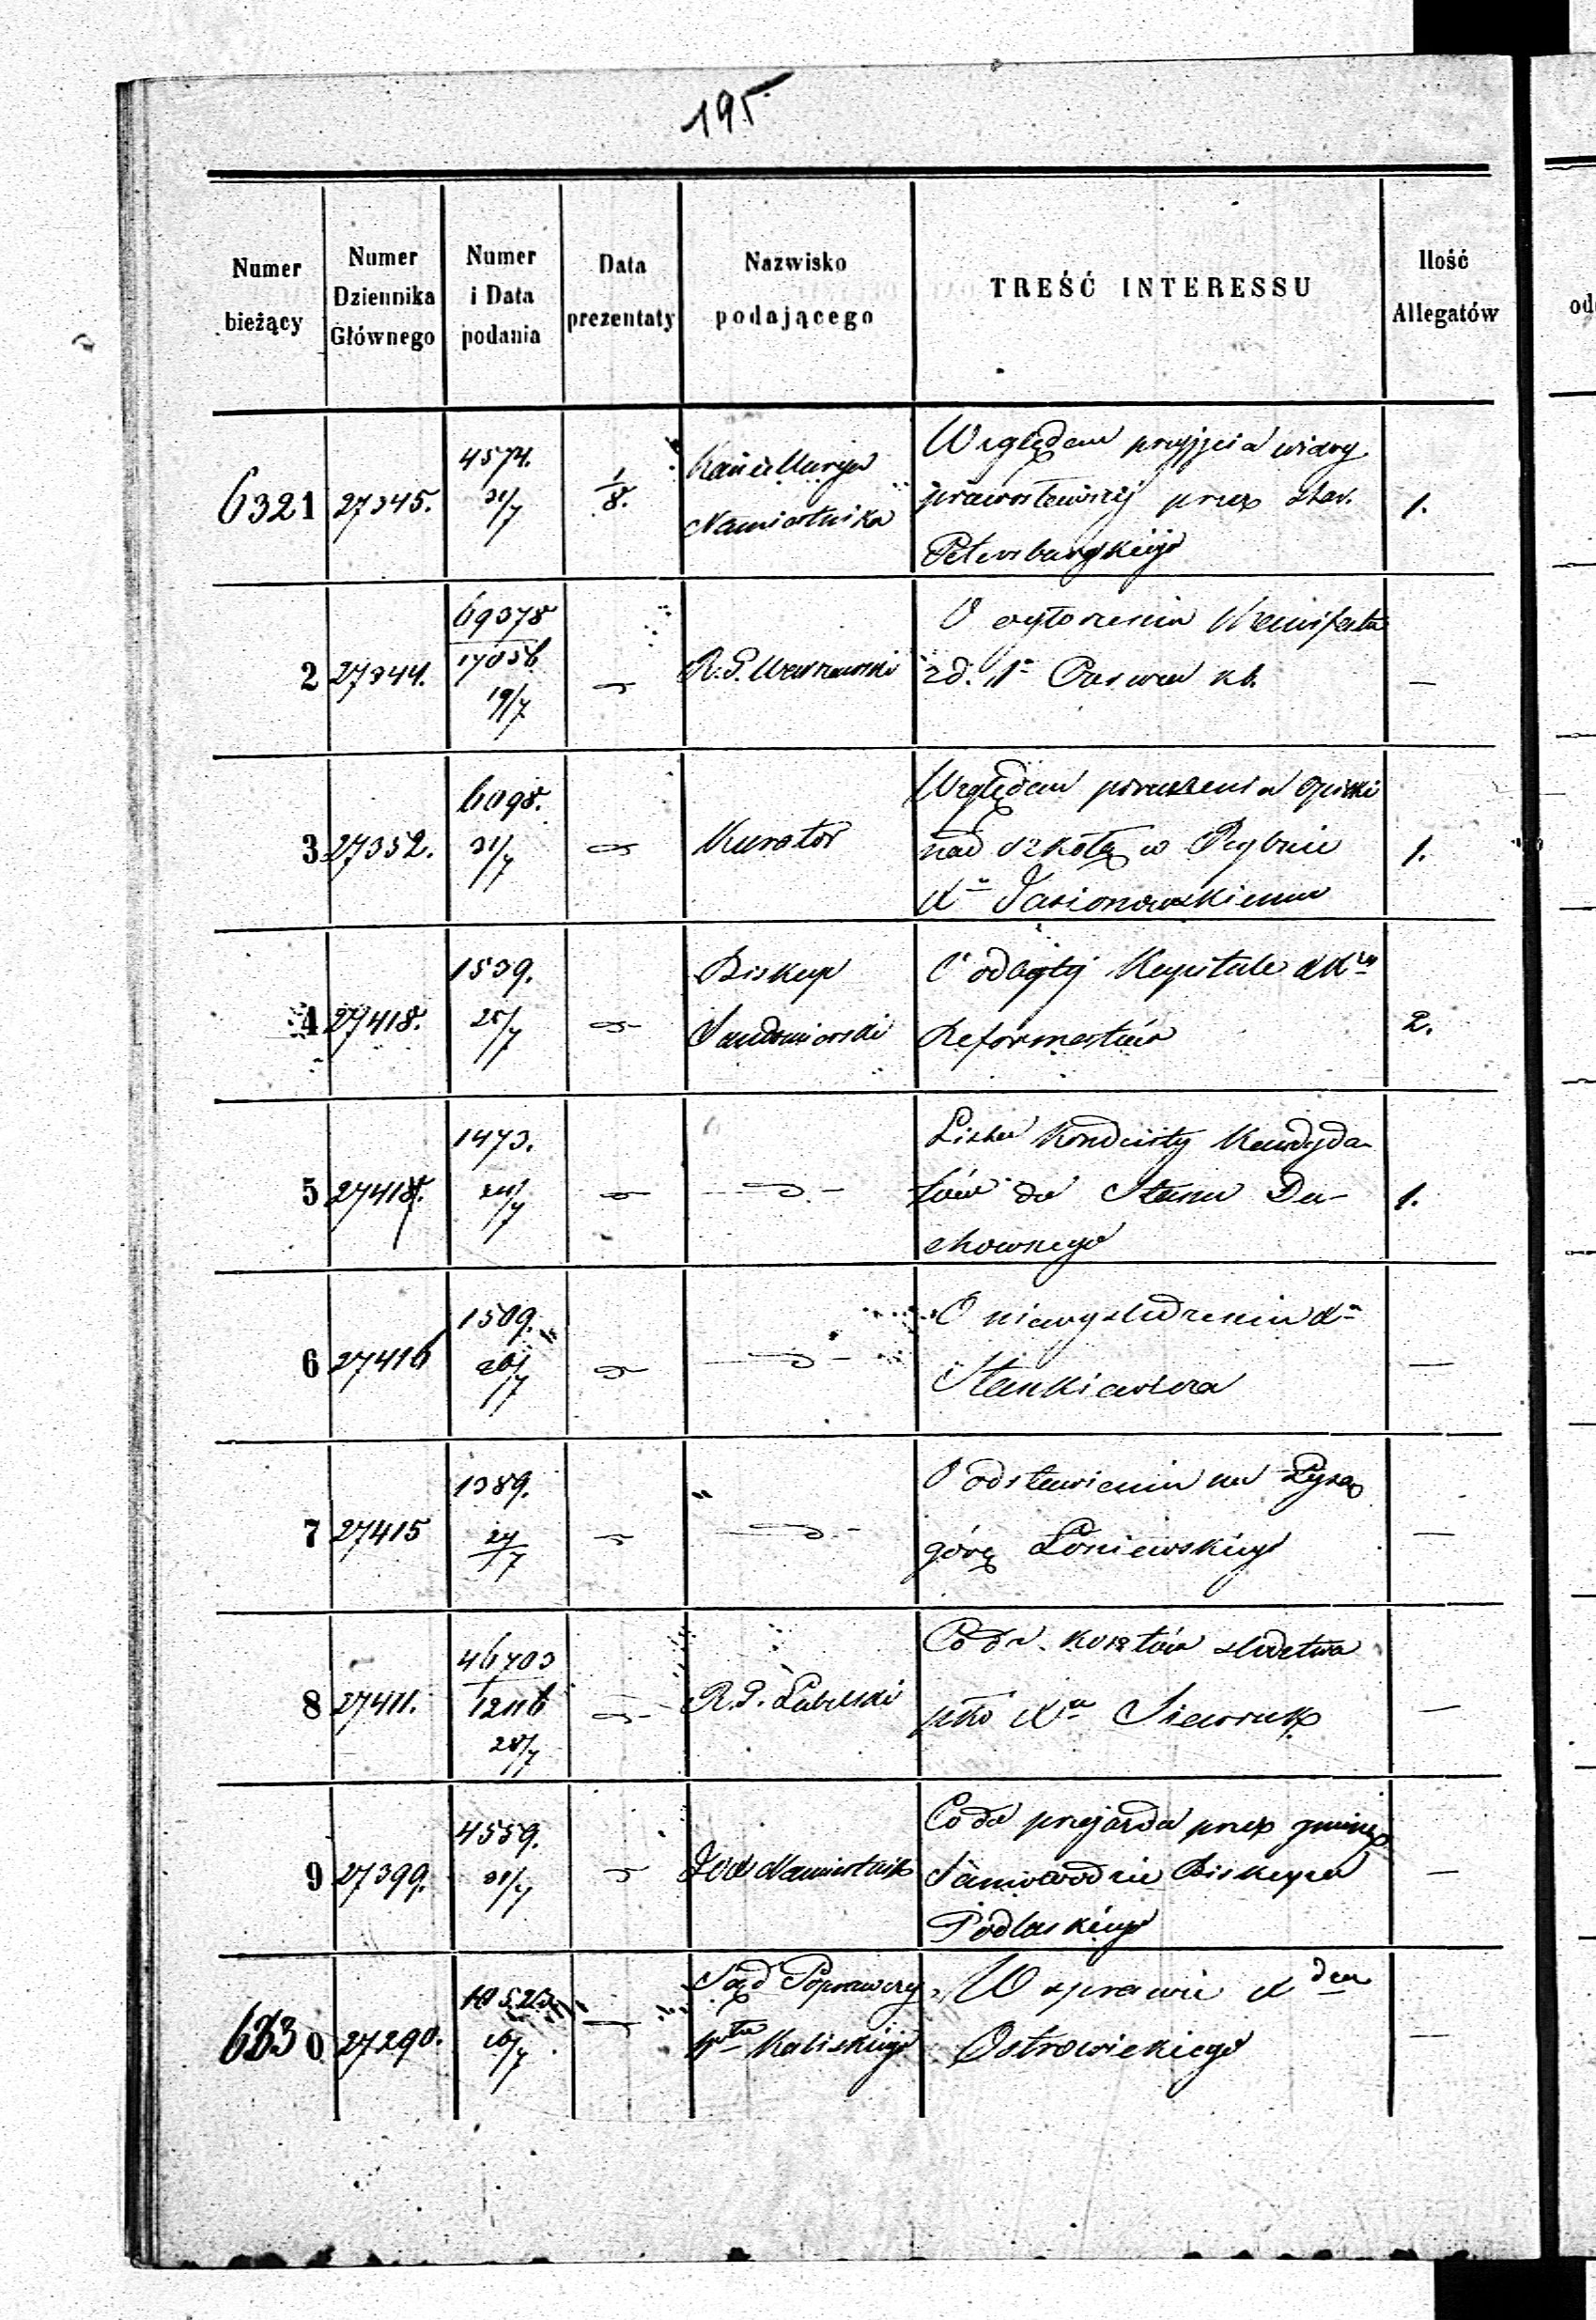 195
Numer bieżący
Numer Dziennika Głównego
Numer i Data podania
Data prezentaty
Nazwisko podającego
TREŚĆ INTERESSU
Ilość Allegatów
6321 27345. 4574. 31/7 1/8. Kancellarya Namiestnika
Względem przyjęcia wiary
prawosławnej przez
Petersburskiego
1.
2 27344. 69378 17056 19/7 R. G. Warszawski
O ogłoszeniu Manifestu
zd. Czerwca
—
3 27352. 6098. 31/7 Kurator
Względem poruczenia opieki
nad szkołą w Rybnie
Xu Jasionowskiemu
1.
4 27418. 1539. 25/7 Biskup Sandomierski
O odbytej Kapitule XX
Reformatów
2.
5 27417. 1473. 24/7
Lista Konduity Kandyda-
tów do Stanu Du-
chownego
1.
6 27416 1509. 26/7
O niewyśledzeniu Xa
Stankiewicza
—
7 27415 1389. 27/7
O odstawieniu na Łysą
górę Łoniewskiego
—
8 27411. 46703 12116 28/7 R. G. Lubelski
Co do kosztów śledztwa
pko Xa
—
9 27399. 4559. 31/7 Namiestnik
Co do przejazdu przez gminę
Biskupa
Podlaskiego
—
6330 27290. 16/7 Sąd Poprawczy Kaliskiego
W sprawie X
Ostrowickiego
—